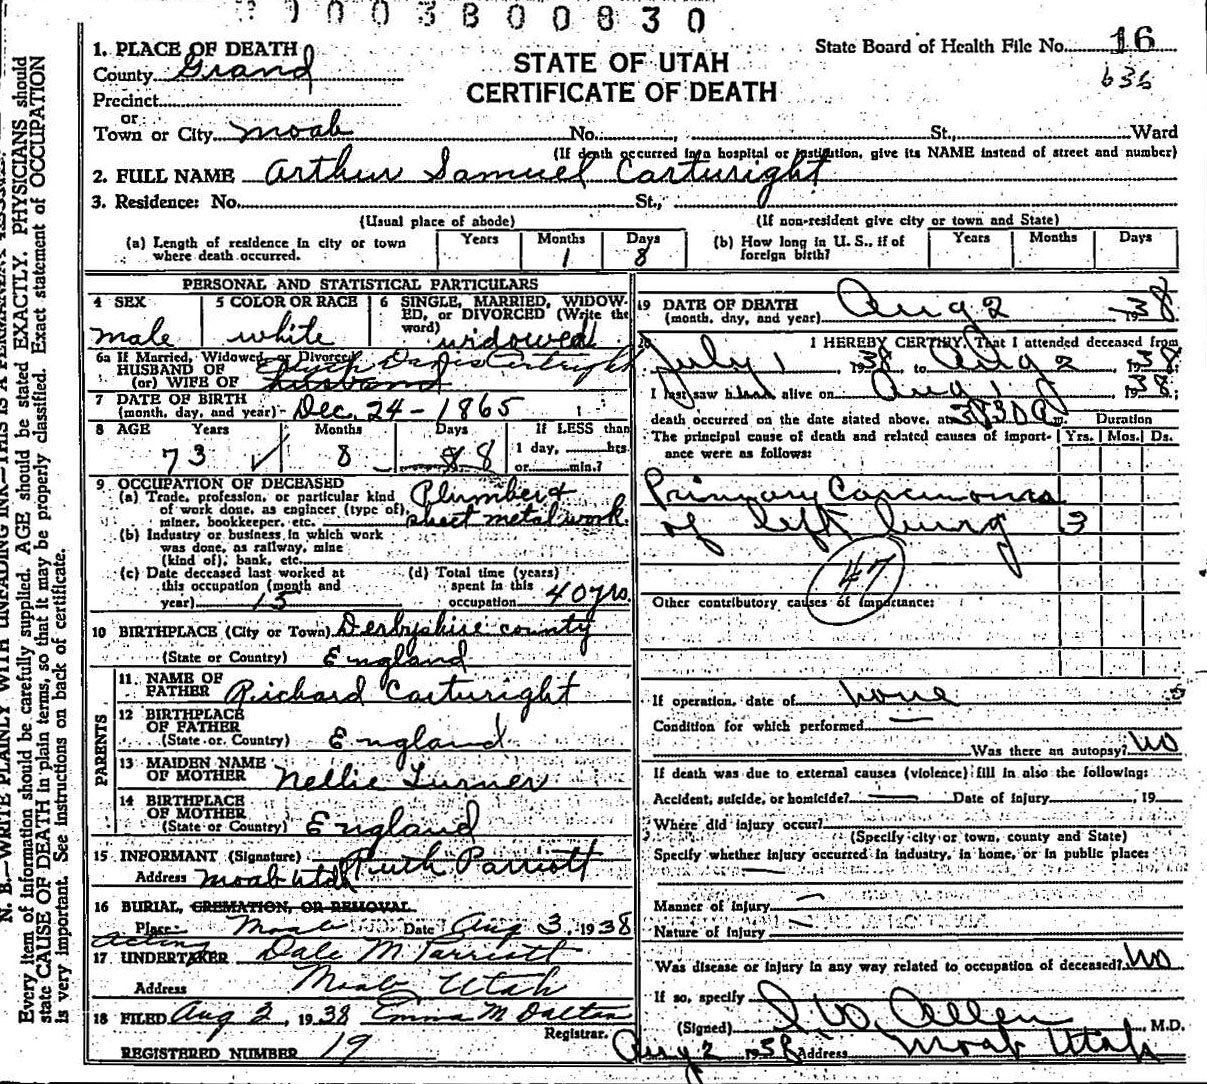 003800830
1. PLACE OF DEATH
County Grand
Precinct
or
Town or City Moab No. , St., Ward
(If death occurred in a hospital or institution, give its NAME instead of street and number)
STATE OF UTAH
CERTIFICATE OF DEATH
State Board of Health File No. 16
636
2. FULL NAME Arthur Samuel Cartwright
3. Residence: No. St.,
(Usual place of abode) (If non-resident give city or town and State)
(a) Length of residence in city or town where death occurred. Years Months 1 Days 8
(b) How long in U. S., if of foreign birth? Years Months Days
PERSONAL AND STATISTICAL PARTICULARS
4 SEX male
5 COLOR OR RACE white
6 SINGLE, MARRIED, WIDOWED, or DIVORCED (Write the word) widowed
6a If Married, Widowed or Divorced
HUSBAND OF Davis Cartwright
(or) WIFE OF husband
7 DATE OF BIRTH
(month, day, and year) Dec. 24 - 1865
8 AGE Years 73 Months 8 Days 8
If LESS than
1 day, hrs.
or min.?
9 OCCUPATION OF DECEASED
(a) Trade, profession, or particular kind
of work done, as engineer (type of),
miner, bookkeeper, etc. Plumber & sheet metal work.
(b) Industry or business in which work
was done, as railway, mine
(kind of), bank, etc.
(c) Date deceased last worked at
this occupation (month and
year) 15
(d) Total time (years)
spent in this
occupation 40 yrs.
10 BIRTHPLACE (City or Town) Derbyshire county
(State or Country) England
PARENTS
11 NAME OF
FATHER Richard Cartwright
12 BIRTHPLACE
OF FATHER
(State or Country) England
13 MAIDEN NAME
OF MOTHER Nellie Turner
14 BIRTHPLACE
OF MOTHER
(State or Country) England
15 INFORMANT (Signature) Ruth Parriott
Address Moab Utah
16 BURIAL, CREMATION, OR REMOVAL
Place Moab Date Aug 3, 1938
acting
17 UNDERTAKER Dale M Parriott
Address Moab Utah
18 FILED Aug 2, 1938 Emma M Dalton
Registrar.
REGISTERED NUMBER 19
19 DATE OF DEATH
(month, day, and year) Aug 2 1938
20 I HEREBY CERTIFY, That I attended deceased from
July 1 1938 to Aug 2, 1938
I last saw him alive on Aug 1, 1938;
death occurred on the date stated above, at 3:30 A m. Duration
The principal cause of death and related causes of importance were as follows: Yrs. Mos. Ds.
Primary Carcinoma
of left lung 3
47
Other contributory causes of importance:
If operation, date of none
Condition for which performed
Was there an autopsy? No
If death was due to external causes (violence) fill in also the following:
Accident, suicide, or homicide? Date of injury , 19
Where did injury occur?
(Specify city or town, county and State)
Specify whether injury occurred in industry, in home, or in public place:
Manner of injury
Nature of injury
Was disease or injury in any way related to occupation of deceased? No
If so, specify
(Signed) I. W. Allen, M.D.
Aug 2 1938 Address Moab Utah
N. B.—WRITE PLAINLY WITH UNFADING INK—THIS IS A PERMANENT
Every item of information should be carefully supplied. AGE should be stated EXACTLY. PHYSICIANS should
state CAUSE OF DEATH in plain terms, so that it may be properly classified. Exact statement of OCCUPATION
is very important. See instructions on back of certificate.